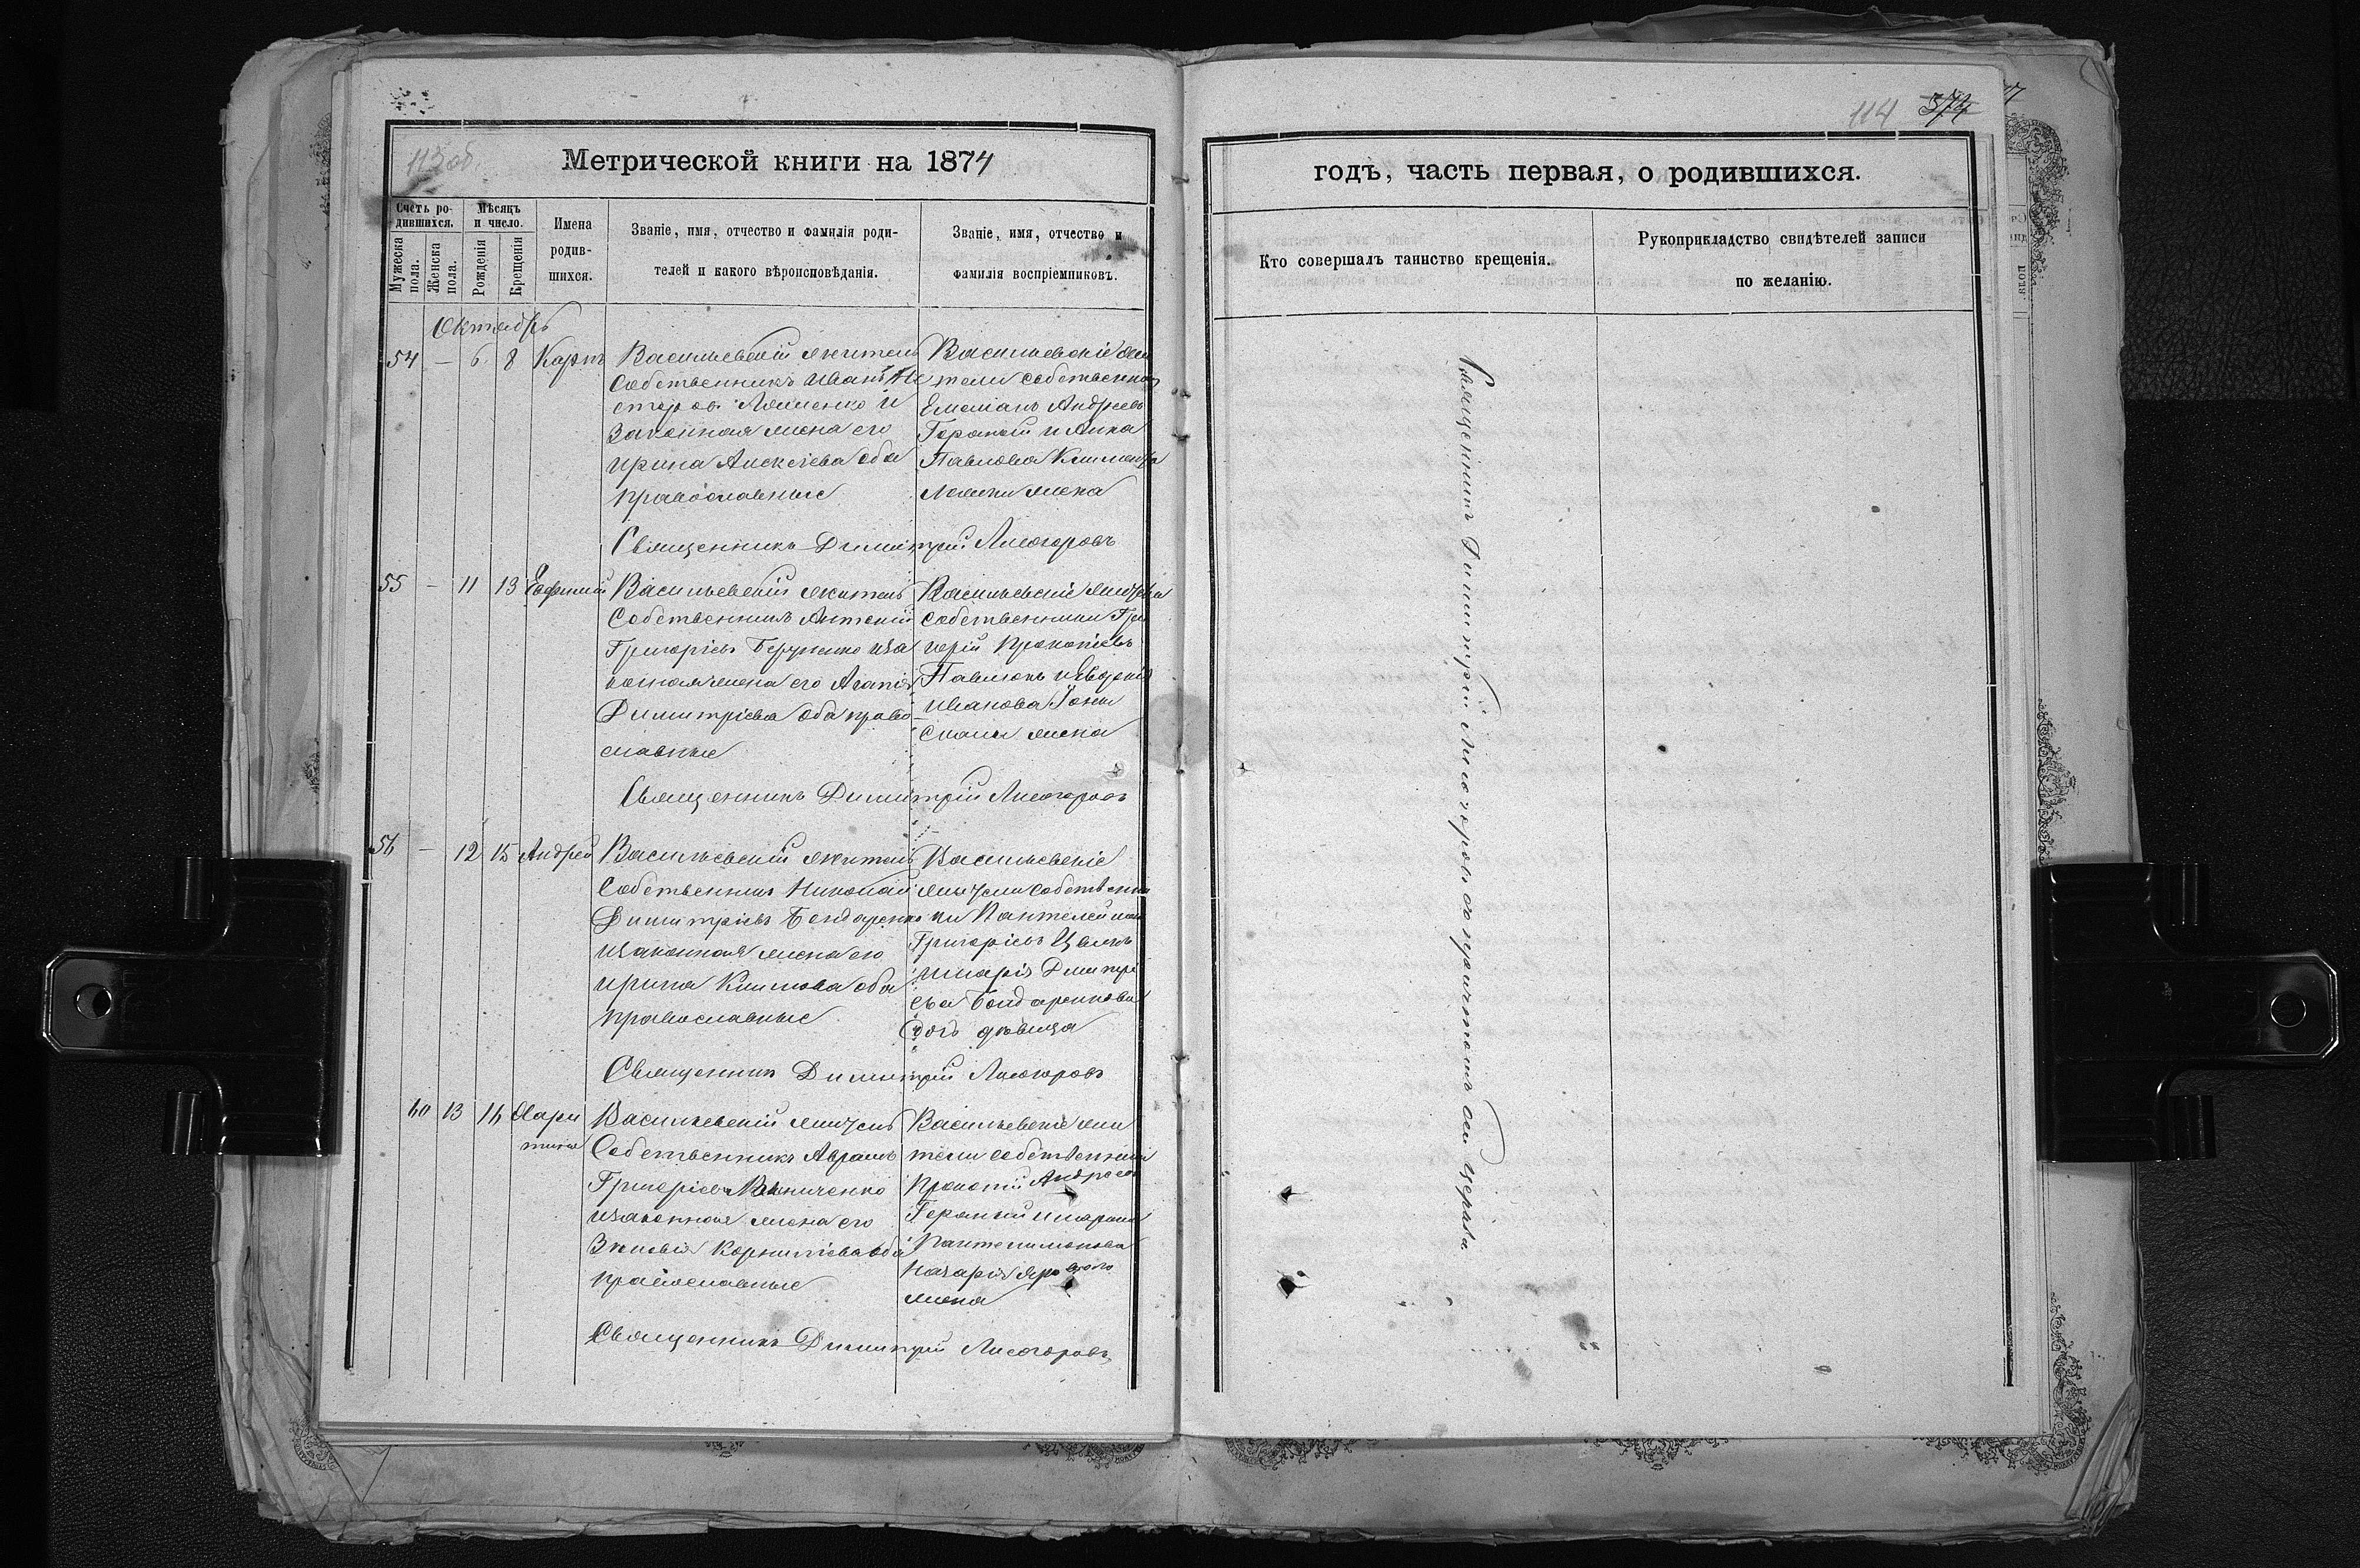 113 об.
Метрической книги на 1874
Счетъ ро-
дившихся.
Мѣсяцъ
и число.
Мужеска
пола.
Женска
пола.
Рожденія
Крещенія
Имена
родив-
шихся.
Званіе, имя, отчество и фамилія роди-
телей и какого вѣроисповѣданія.
Званіе, имя, отчество и
фамилія воспріемниковъ.
Октябрь
54 — 6 8 Карпъ
Васильевскій житель
Собственникъ Иванъ Не
стеровъ и
Законная жена его
Ирина Алексѣева оба
православные
Васильевскіе жи
тели собственники
Емеліанъ Андреевъ
Гераный и Анна
Павлова Климента
жена
Священникъ Димитрій Лисогоровъ
55 — 11 13 Евфимій
Васильевскій житель
Собственникъ Антоній
Григоріевъ и за
конная жена его Агапія
Димитріева оба право
славные
Васильевскіе жители
собственники Гри
горій Прокопіевъ
Павлюкъ и Евдокія
Иванова
жена
Священникъ Димитрій Лисогоровъ
56 — 12 15 Андрей
Васильевскій житель
Собственникъ Николай
Димитріевъ Бондаренко
и законная жена его
Ирина Климова оба
православные
Васильевскіе
жители собственни
ки Пантелеймонъ
Григоріевъ
и Марія Димитрі
ева Бондаренкова
дочь дѣвица
Священникъ Димитрій Лисогоровъ
60 13 16 Хари
тина
Васильевскій житель
Собственникъ Аврамъ
Григоріевъ
и законная жена его
Зиновія Корниліева оба
православные
Васильевскіе жи
тели собственники
Прокопій Андреевъ
Гераный и Марина
Пантелимонова
Назарія Ярового
жена
Священникъ Димитрій Лисогоровъ
114 374
годъ, часть первая, о родившихся.
Кто совершалъ таинство крещенія.
Рукоприкладство свидѣтелей записи
по желанію.
Священникъ Димитрій Лисогоровъ съ причтомъ сей церкви